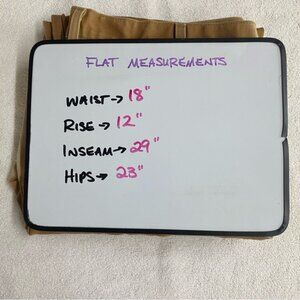 FLAT MEASUREMENTS
WAIST→ 18"
RISE→ 12"
INSEAM→ 29"
HIPS→ 23"